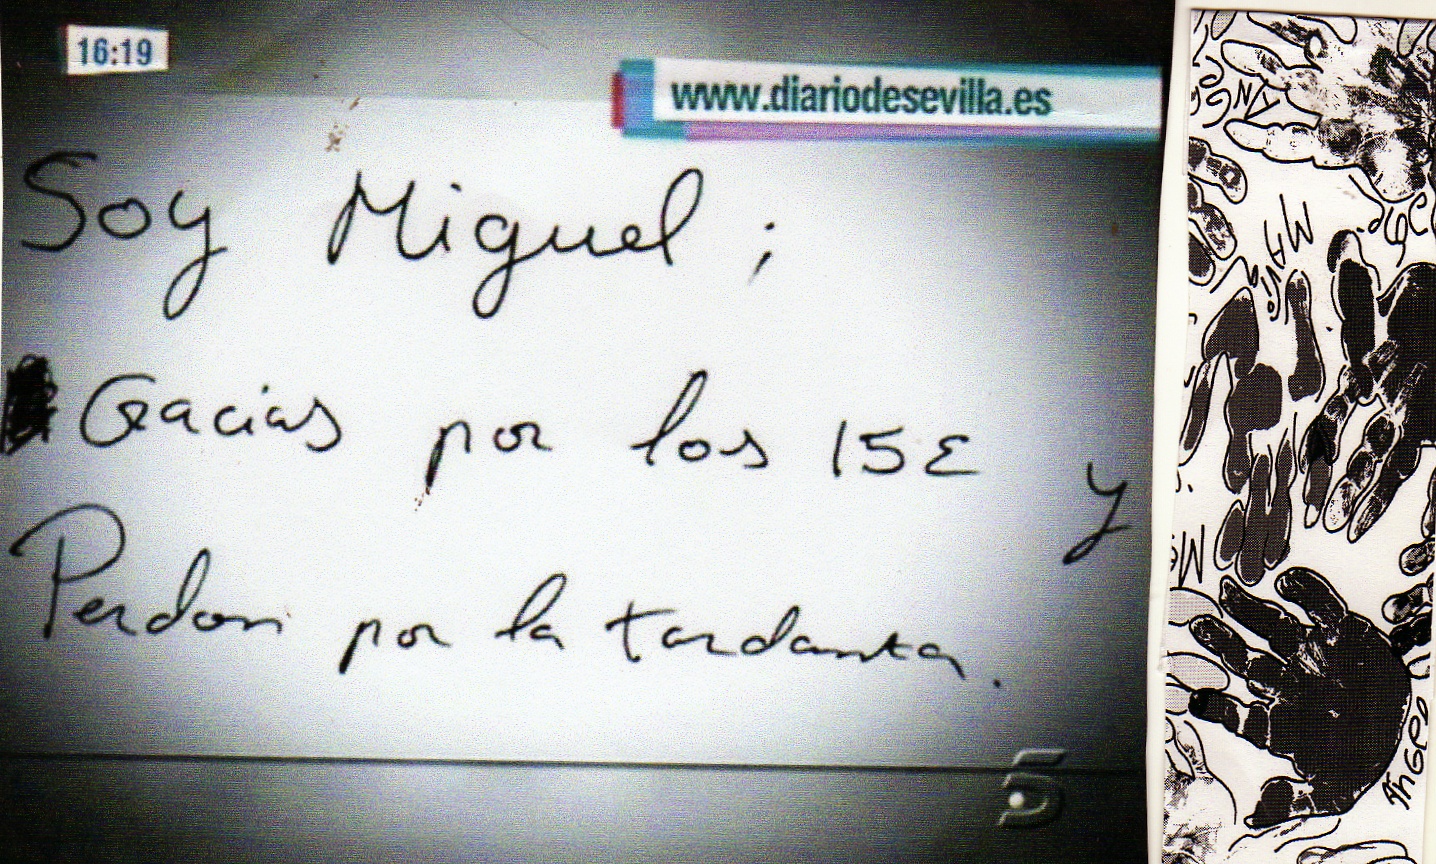 16:19
www.diariodesevilla.es
Soy Miguel;
Gracias por los 15€ y
Perdon por la tardanza.
5
MAria
ANGEL